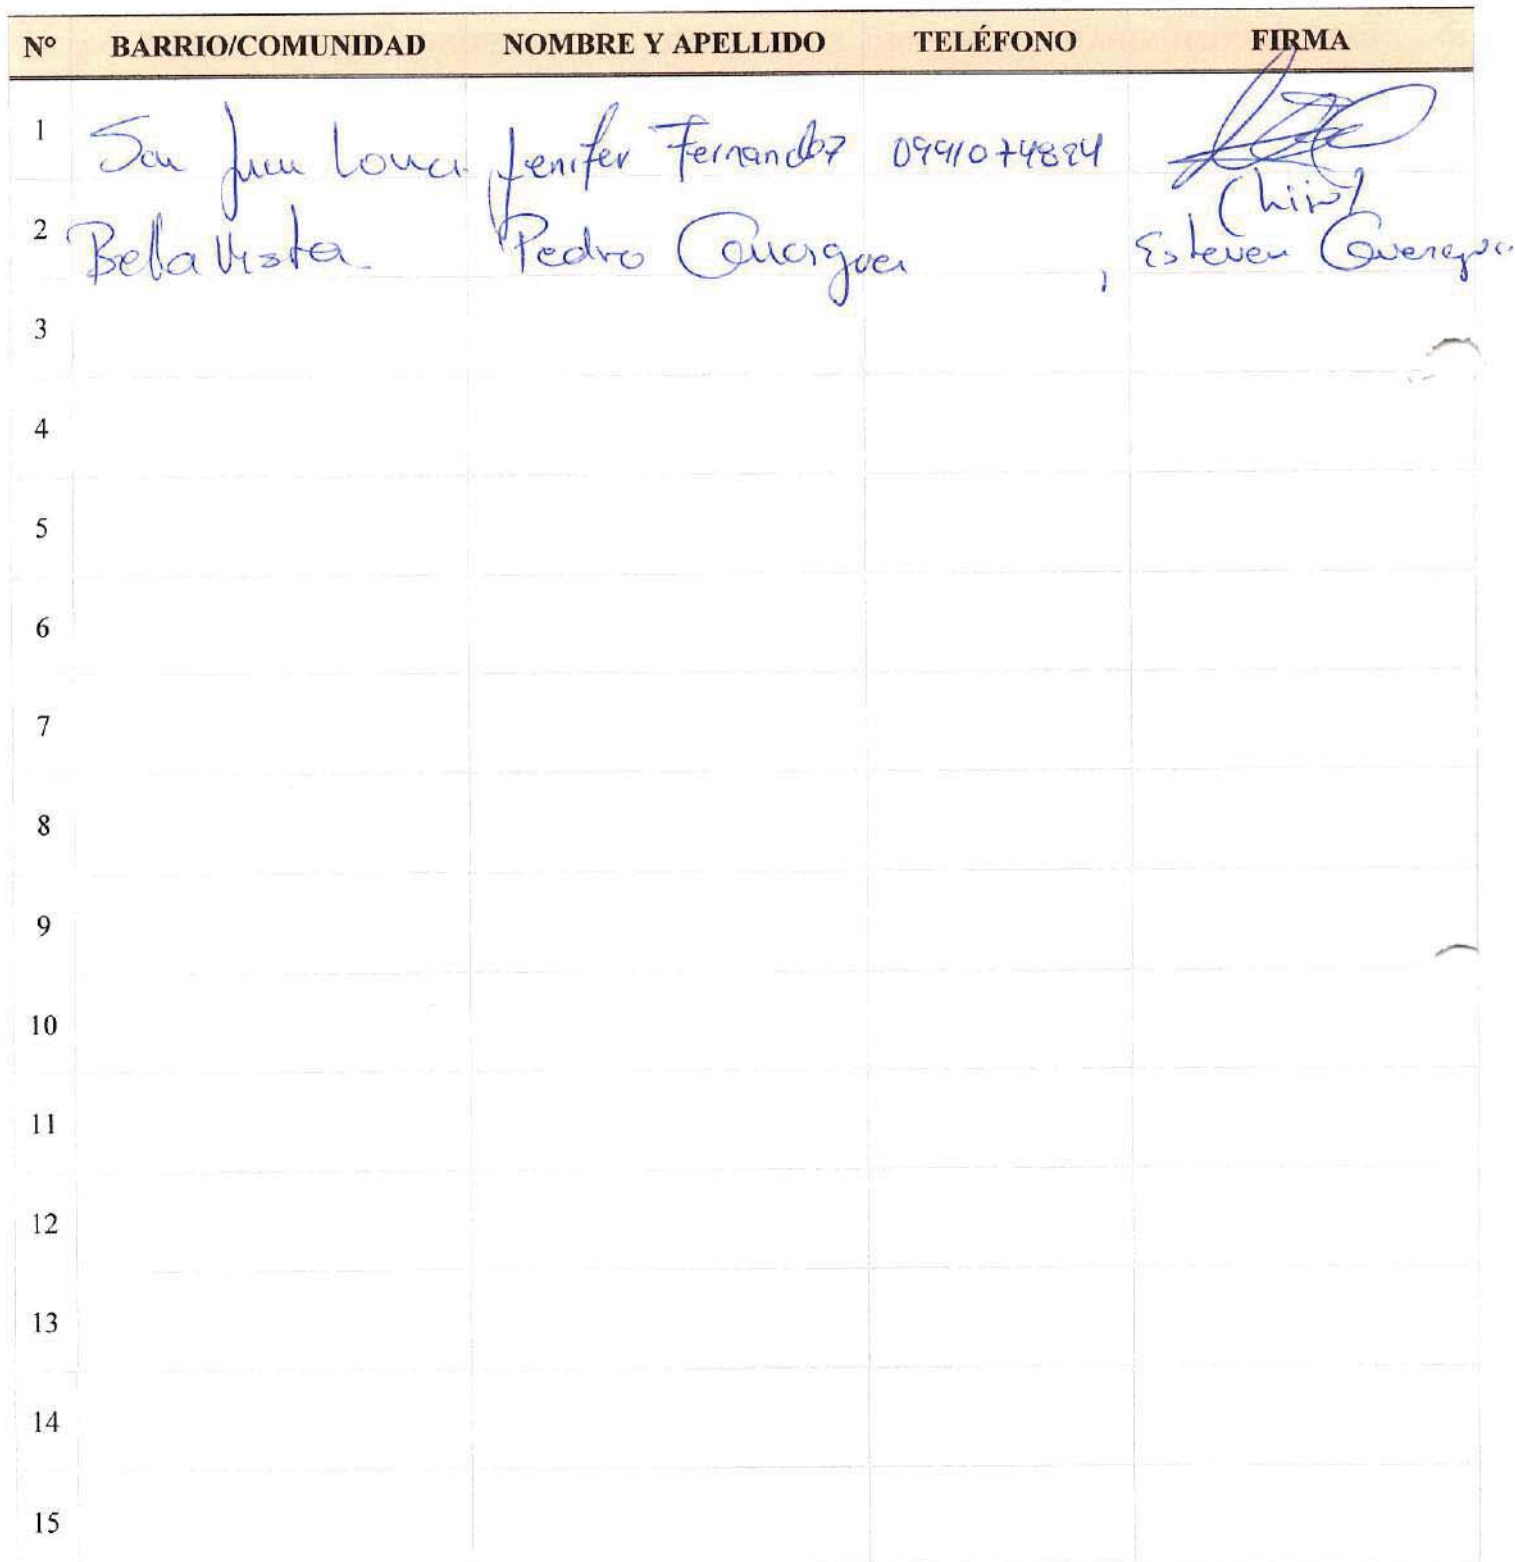 N° BARRIO/COMUNIDAD NOMBRE Y APELLIDO TELÉFONO FIRMA
1 San Juan Loma Jenifer Fernandez 0991074894
2 Bella Vista Pedro
Esteven
3
4
5
6
7
8
9
10
11
12
13
14
15